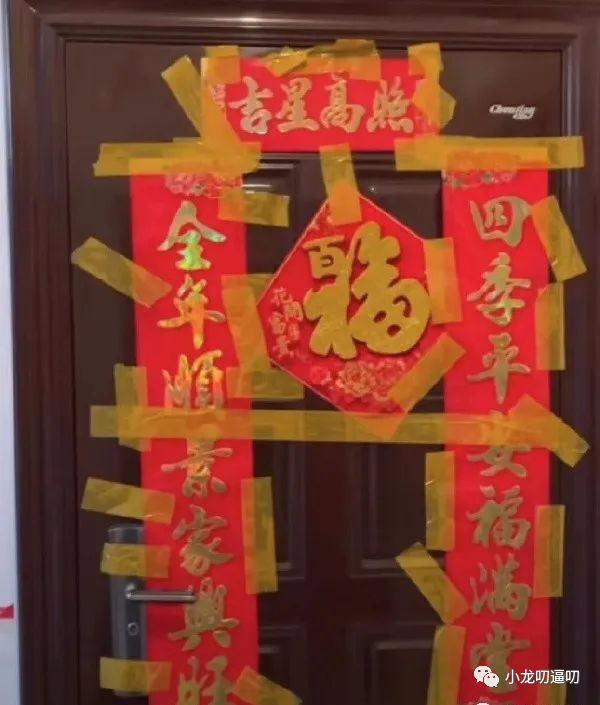 吉星高照
四季平安福滿堂
全年順景家興旺
百福
花開富貴
小龙叨逼叨